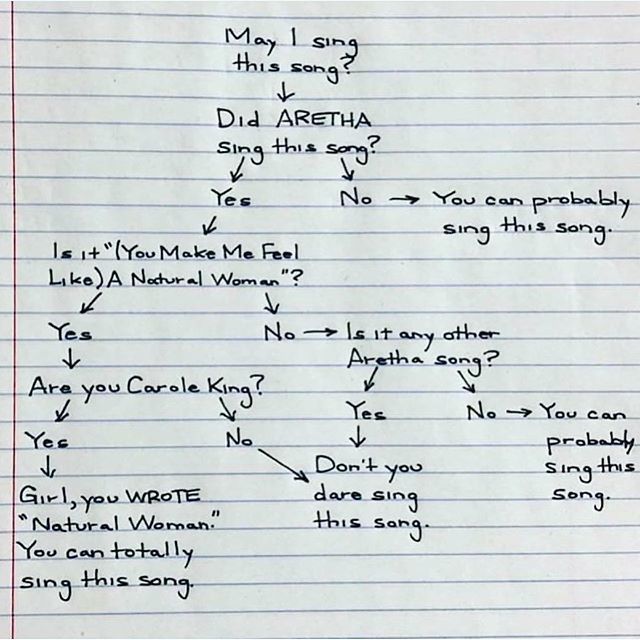 May I sing
this song?
Did ARETHA
sing this song?
Yes
No → You can probably
sing this song.
Is it "(You Make Me Feel
Like) A Natural Woman"?
Yes
No → Is it any other
Aretha song?
Are you Carole King?
Yes
No → You can
probably
sing this
song.
Yes
No
Don't you
dare sing
this song.
Girl, you WROTE
"Natural Woman."
You can totally
sing this song.